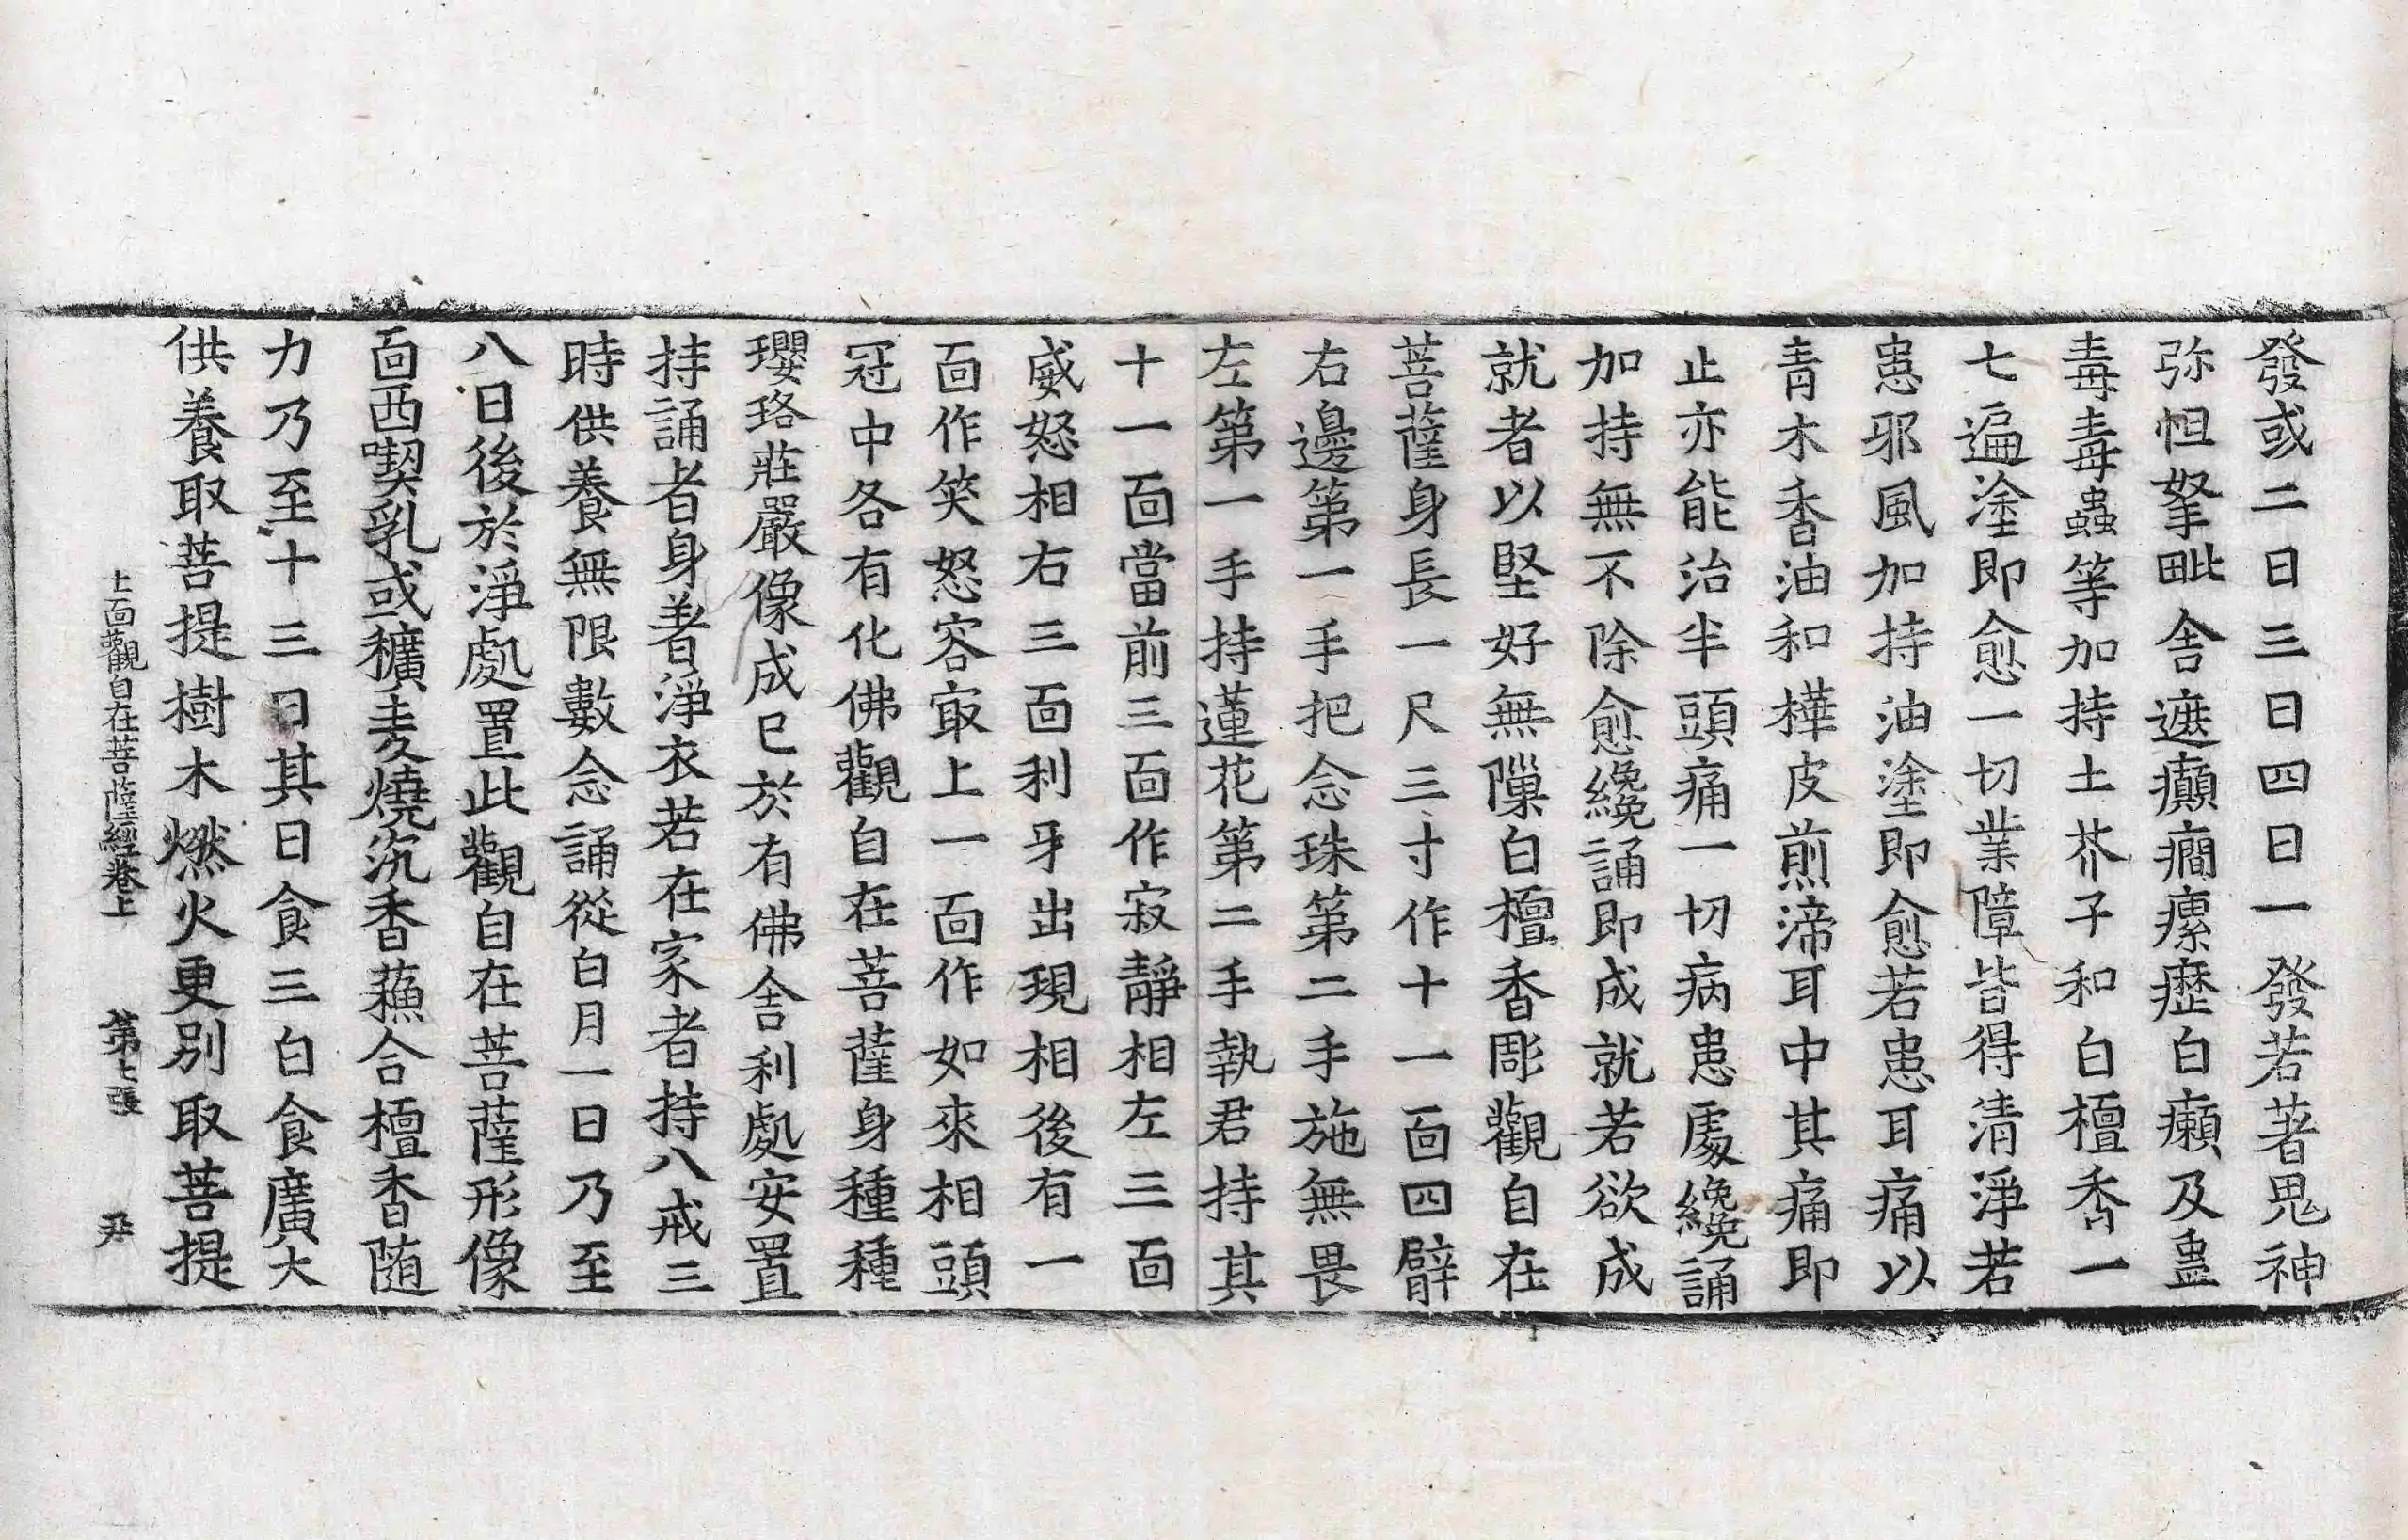 發或二日三日四日一發若著鬼神
弥怛拏毗舍遮癲癎瘰癧白癩及蠱
毒毒蟲等加持土芥子和白檀香一
七遍塗即愈一切業障皆得清淨若
患邪風加持油塗即愈若患耳痛以
青木香油和樺皮煎渧耳中其痛即
止亦能治半頭痛一切病患處纔誦
加持無不除愈纔誦即成就若欲成
就者以堅好無隟白檀香彫觀自在
菩薩身長一尺三寸作十一面四臂
右邊第一手把念珠第二手施無畏
左第一手持蓮花第二手執君持其
十一面當前三面作寂靜相左三面
威怒相右三面利牙出現相後有一
面作笑怒容㝡上一面作如來相頭
冠中各有化佛觀自在菩薩身種種
瓔珞莊嚴像成已於有佛舍利處安置
持誦者身著淨衣若在家者持八戒三
時供養無限數念誦從白月一日乃至
八日後於淨處置此觀自在菩薩形像
面西喫乳或穬麦燒沉香蘓合檀香随
力乃至十三日其日食三白食廣大
供養取菩提樹木燃火更別取菩提
十一面觀自在菩薩經卷上 第七張 尹